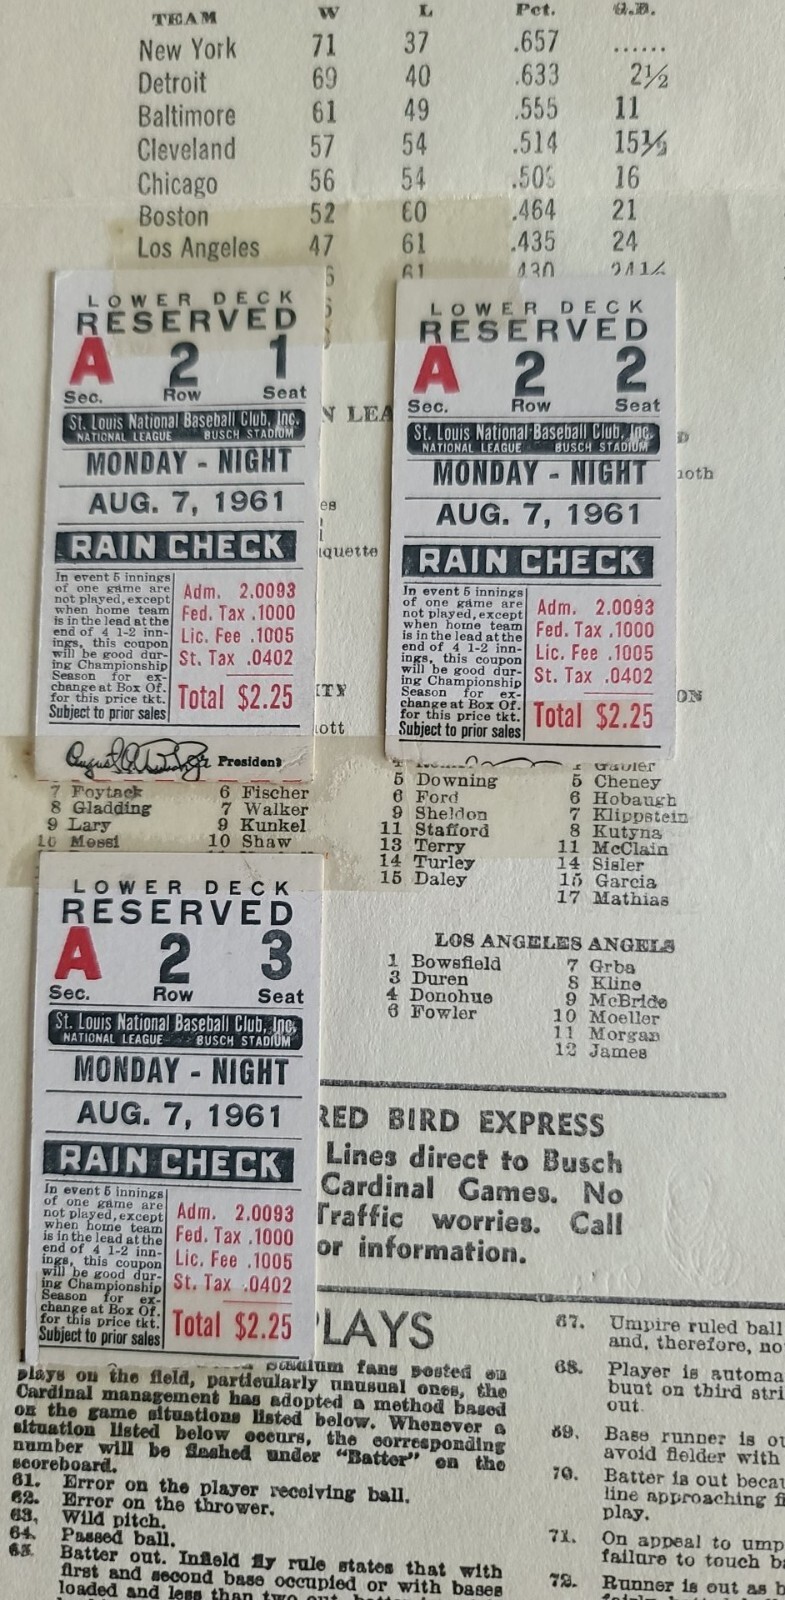 TEAM W L Pct. G.B.
New York 71 37 .657 ......
Detroit 69 40 .633 2½
Baltimore 61 49 .555 11
Cleveland 57 54 .514 15½
Chicago 56 54 .509 16
Boston 52 60 .464 21
Los Angeles 47 61 .435 24
6 61 .430 24½
LOWER DECK
RESERVED
A 2 1
Sec. Row Seat
St. Louis National Baseball Club, Inc.
NATIONAL LEAGUE BUSCH STADIUM
MONDAY - NIGHT
AUG. 7, 1961
RAIN CHECK
In event 5 innings
of one game are
not played, except
when home team
is in the lead at the
end of 4 1-2 inn-
ings, this coupon
will be good dur-
ing Championship
Season for ex-
change at Box Of.
for this price tkt.
Subject to prior sales
Adm. 2.0093
Fed. Tax .1000
Lic. Fee .1005
St. Tax .0402
Total $2.25
President
LOWER DECK
RESERVED
A 2 2
Sec. Row Seat
St. Louis National Baseball Club, Inc.
NATIONAL LEAGUE BUSCH STADIUM
MONDAY - NIGHT
AUG. 7, 1961
RAIN CHECK
In event 5 innings
of one game are
not played, except
when home team
is in the lead at the
end of 4 1-2 inn-
ings, this coupon
will be good dur-
ing Championship
Season for ex-
change at Box Of.
for this price tkt.
Subject to prior sales
Adm. 2.0093
Fed. Tax .1000
Lic. Fee .1005
St. Tax .0402
Total $2.25
N LEA
D
noth
es
quette
ITY
ott
ON
7 Foytack 6 Fischer
8 Gladding 7 Walker
9 Lary 9 Kunkel
10 Mossi 10 Shaw
1 Gabler
5 Downing 5 Cheney
6 Ford 6 Hobaugh
9 Sheldon 7 Klippstein
11 Stafford 8 Kutyna
13 Terry 11 McClain
14 Turley 14 Sisler
15 Daley 15 Garcia
17 Mathias
LOS ANGELES ANGELS
1 Bowsfield 7 Grba
3 Duren 8 Kline
4 Donohue 9 McBride
6 Fowler 10 Moeller
11 Morgan
12 James
LOWER DECK
RESERVED
A 2 3
Sec. Row Seat
St. Louis National Baseball Club, Inc.
NATIONAL LEAGUE BUSCH STADIUM
MONDAY - NIGHT
AUG. 7, 1961
RAIN CHECK
In event 5 innings
of one game are
not played, except
when home team
is in the lead at the
end of 4 1-2 inn-
ings, this coupon
will be good dur-
ing Championship
Season for ex-
change at Box Of.
for this price tkt.
Subject to prior sales
Adm. 2.0093
Fed. Tax .1000
Lic. Fee .1005
St. Tax .0402
Total $2.25
RED BIRD EXPRESS
Lines direct to Busch
Cardinal Games. No
Traffic worries. Call
or information.
PLAYS
Stadium fans posted on
plays on the field, particularly unusual ones, the
Cardinal management has adopted a method based
on the game situations listed below. Whenever a
situation listed below occurs, the corresponding
number will be flashed under "Batter" on the
scoreboard.
61. Error on the player receiving ball.
62. Error on the thrower.
63. Wild pitch.
64. Passed ball.
65. Batter out. Infield fly rule states that with
first and second base occupied or with bases
loaded and less than two out, batter
67. Umpire ruled ball
and, therefore, no
68. Player is automa
bunt on third stri
out.
69. Base runner is ou
avoid fielder with
70. Batter is out becau
line approaching fi
play.
71. On appeal to ump
failure to touch ba
72. Runner is out as b